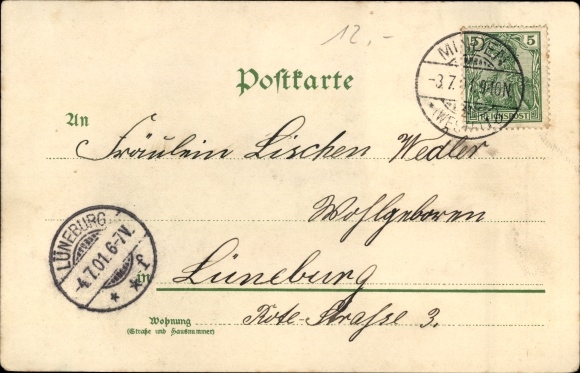 12.-
5
REICHSPOST
MINDEN
-3.7. 9-10N.
*(WESTF.)
Postkarte
An
Fräulein Lischen Wedler
Wohlgeboren
LÜNEBURG
4.7.01. 6-7V.
* * f
in Lüneburg
Wohnung
(Straße und Hausnummer)
Rote-Strafse 3.